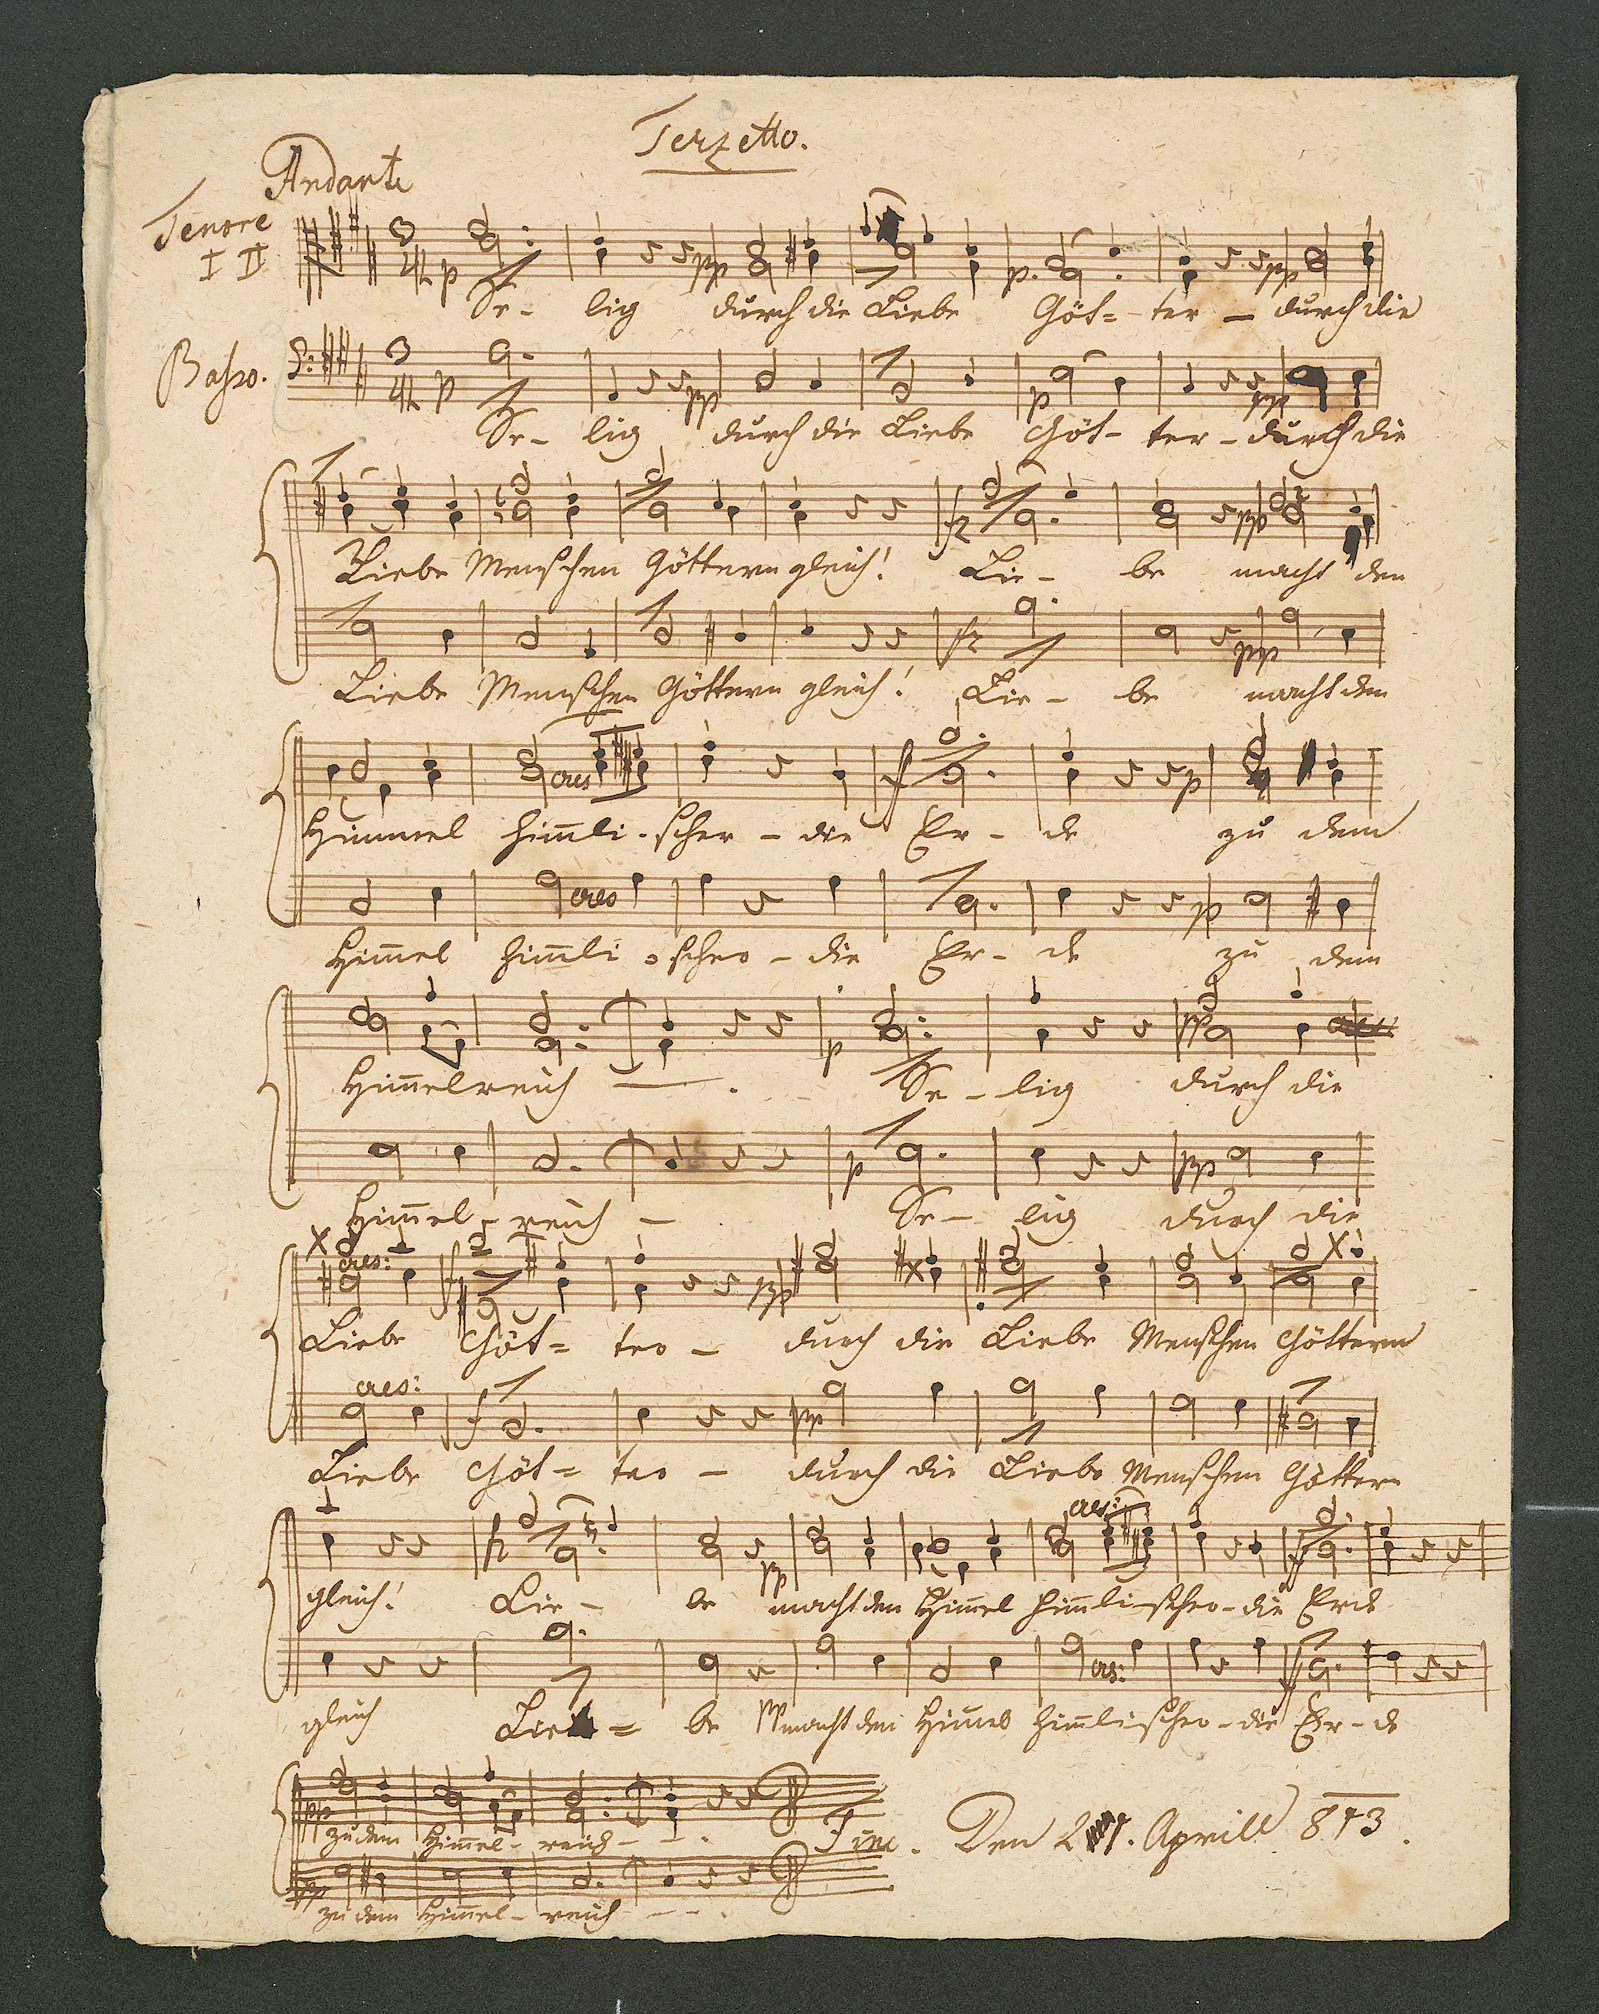 Terzetto.
Andante
Tenore
I II
p pp p. pp
Se- lig durch die Liebe Göt=- ter — durch die
Basso.
p pp p pp
Se- lig durch die Liebe Göt- ter - durch die
fz pp
Liebe Menschen Göttern gleich! Lie - be macht den
fz pp
Liebe Menschen Göttern gleich! Lie - be macht den
cres f p
Himmel him̄li - scher - die Er - de zu dem
cres p
Him̄el him̄li - scher - die Er - de zu dem
p pp
Him̄elreich — . Se - lig durch die
p pp
Him̄el - reich - Se - lig durch die
cres: f pp
Liebe Göt= ter - durch die Liebe Menschen Göttern
cres: f pp
Liebe Göt= ter - durch die Liebe Menschen Göttern
fz pp cres: f
gleich! Lie - be macht den Him̄el him̄lischer - die Erde
cres: f
gleich Lie = be macht den Him̄el him̄lischer - die Er - de
pp
zu dem Him̄el - reich - - .
Fine. Den 21. Aprill 813.
pp
zu dem Him̄el - reich - - - .